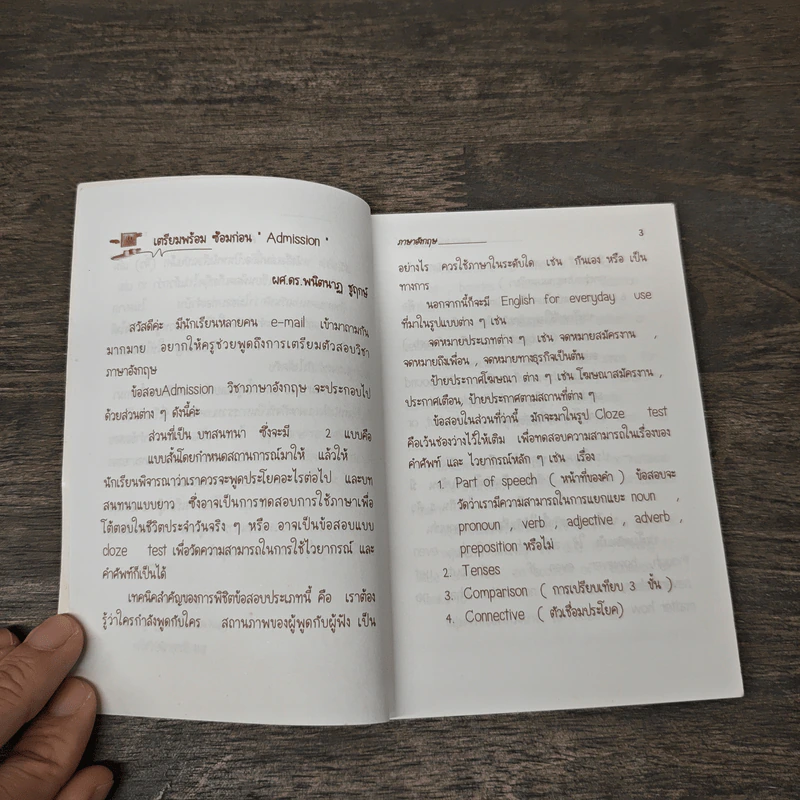 เตรียมพร้อม ซ้อมก่อน " Admission "
ผศ.ดร.พนิตนาฏ ชูฤกษ์
สวัสดีค่ะ มีนักเรียนหลายคน e-mail เข้ามาถามกัน
มากมาย อยากให้ครูช่วยพูดถึงการเตรียมตัวสอบวิชา
ภาษาอังกฤษ
ข้อสอบAdmission วิชาภาษาอังกฤษ จะประกอบไป
ด้วยส่วนต่าง ๆ ดังนี้ค่ะ
ส่วนที่เป็น บทสนทนา ซึ่งจะมี 2 แบบคือ
แบบสั้นโดยกำหนดสถานการณ์มาให้ แล้วให้
นักเรียนพิจารณาว่าเราควรจะพูดประโยคอะไรต่อไป และบท
สนทนาแบบยาว ซึ่งอาจเป็นการทดสอบการใช้ภาษาเพื่อ
โต้ตอบในชีวิตประจำวันจริง ๆ หรือ อาจเป็นข้อสอบแบบ
cloze test เพื่อวัดความสามารถในการใช้ไวยากรณ์ และ
คำศัพท์ก็เป็นได้
เทคนิคสำคัญของการพิชิตข้อสอบประเภทนี้ คือ เราต้อง
รู้ว่าใครกำลังพูดกับใคร สถานภาพของผู้พูดกับผู้ฟัง เป็น
ภาษาอังกฤษ 3
อย่างไร ควรใช้ภาษาในระดับใด เช่น กันเอง หรือ เป็น
ทางการ
นอกจากนี้ก็จะมี English for everyday use
ที่มาในรูปแบบต่าง ๆ เช่น
จดหมายประเภทต่าง ๆ เช่น จดหมายสมัครงาน ,
จดหมายถึงเพื่อน , จดหมายทางธุรกิจเป็นต้น
ป้ายประกาศโฆษณา ต่าง ๆ เช่น โฆษณาสมัครงาน ,
ประกาศเตือน, ป้ายประกาศตามสถานที่ต่าง ๆ
ข้อสอบในส่วนที่ว่านี้ มักจะมาในรูป Cloze test
คือเว้นช่องว่างไว้ให้เติม เพื่อทดสอบความสามารถในเรื่องของ
คำศัพท์ และ ไวยากรณ์หลัก ๆ เช่น เรื่อง
1. Part of speech ( หน้าที่ของคำ ) ข้อสอบจะ
วัดว่าเรามีความสามารถในการแยกแยะ noun ,
pronoun , verb , adjective , adverb ,
preposition หรือไม่
2. Tenses
3. Comparison ( การเปรียบเทียบ 3 ขั้น )
4. Connective ( ตัวเชื่อมประโยค)